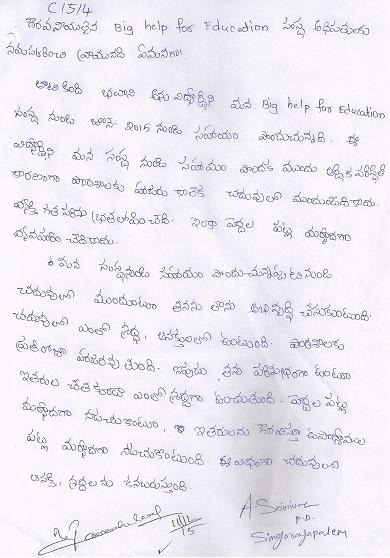 C15/4
గౌరవనీయులైన Big help for Education సంస్థ అధిపతులకు
నమస్కరించి వ్రాయునది ఏమనగా.
తాటికొండ భవాని అను విద్యార్థిని మన Big help for Education
సంస్థ నుండి జూన్-2015 నుండి సహాయం పొందుచున్నది. ఈ
విద్యార్థిని మన సంస్థ నుండి సహాయం పొందక ముందు ఆర్థిక పరిస్థితి
కారణంగా పాఠశాలకు హాజరు కాలేక చదువులో ముందుండేది కాదు.
వ్యక్తిగత పరిశుభ్రత లోపించేది. ఇంకా పెద్దల పట్ల మర్యాదగా
వ్యవహరించేది కాదు.
మన సంస్థ నుండి సహాయం పొందుచున్నప్పటి నుండి
చదువులో ముందుంటూ తనను తాను అభివృద్ధి చేసుకుంటుంది.
చదువులో ఎంతో శ్రద్ధ, ఆసక్తులతో ఉంటుంది. పాఠశాలకు
ప్రతిరోజూ హాజరవుతుంది. ఇప్పుడు తను పరిశుభ్రంగా ఉంటూ
ఇతరుల చేత కూడా ఎంతో శ్రద్ధగా ఉంచుతుంది. పెద్దల పట్ల
మర్యాదగా నడుచుకుంటూ, ఇతరులను గౌరవిస్తూ ఉపాధ్యాయుల
పట్ల మర్యాదగా నడుచుకొంటుంది. ఈ విధంగా చదువులో
ఆసక్తి, శ్రద్ధలను కనబరుస్తుంది.
11/12/15
A. Srinivas
P.D.
Singarayapalem